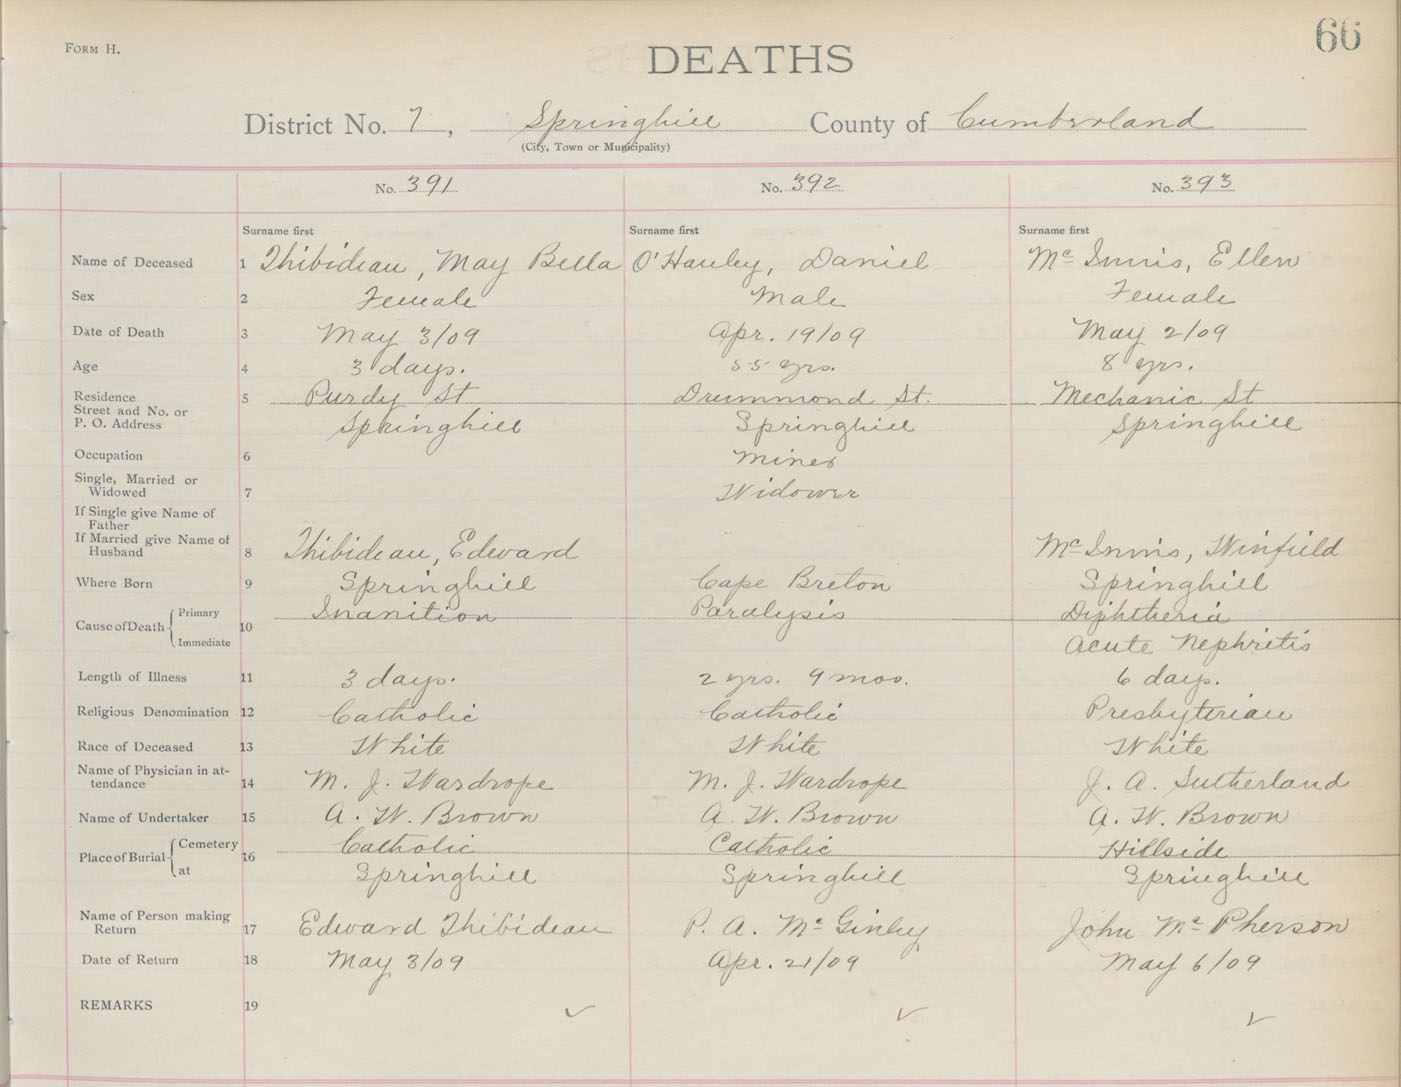 FORM H.
66
DEATHS
District No. 7, Springhill County of Cumberland
(City, Town or Municipality)
No. 391 No. 392 No. 393
Surname first Surname first Surname first
Name of Deceased 1 Thibideau, May Bella O'Hanley, Daniel Mc Innis, Ellen
Sex 2 Female Male Female
Date of Death 3 May 3/09 Apr. 19/09 May 2/09
Age 4 3 days. 55 yrs. 8 yrs.
Residence 5 Purdy St Drummond St. Mechanic St
Street and No. or
P. O. Address Springhill Springhill Springhill
Occupation 6 Miner
Single, Married or
Widowed 7 Widower
If Single give Name of
Father
If Married give Name of
Husband 8 Thibideau, Edward Mc Innis, Winfield
Where Born 9 Springhill Cape Breton Springhill
Cause of Death 10 Primary Inanition Paralysis Diphtheria
Immediate Acute Nephritis
Length of Illness 11 3 days. 2 yrs. 9 mos. 6 days.
Religious Denomination 12 Catholic Catholic Presbyterian
Race of Deceased 13 White White White
Name of Physician in at-
tendance 14 M. J. Wardrope M. J. Wardrope J. A. Sutherland
Name of Undertaker 15 A. W. Brown A. W. Brown A. W. Brown
Place of Burial 16 Cemetery Catholic Catholic Hillside
at Springhill Springhill Springhill
Name of Person making
Return 17 Edward Thibideau P. A. Mc Ginley John Mc Pherson
Date of Return 18 May 3/09 Apr. 21/09 May 6/09
REMARKS 19